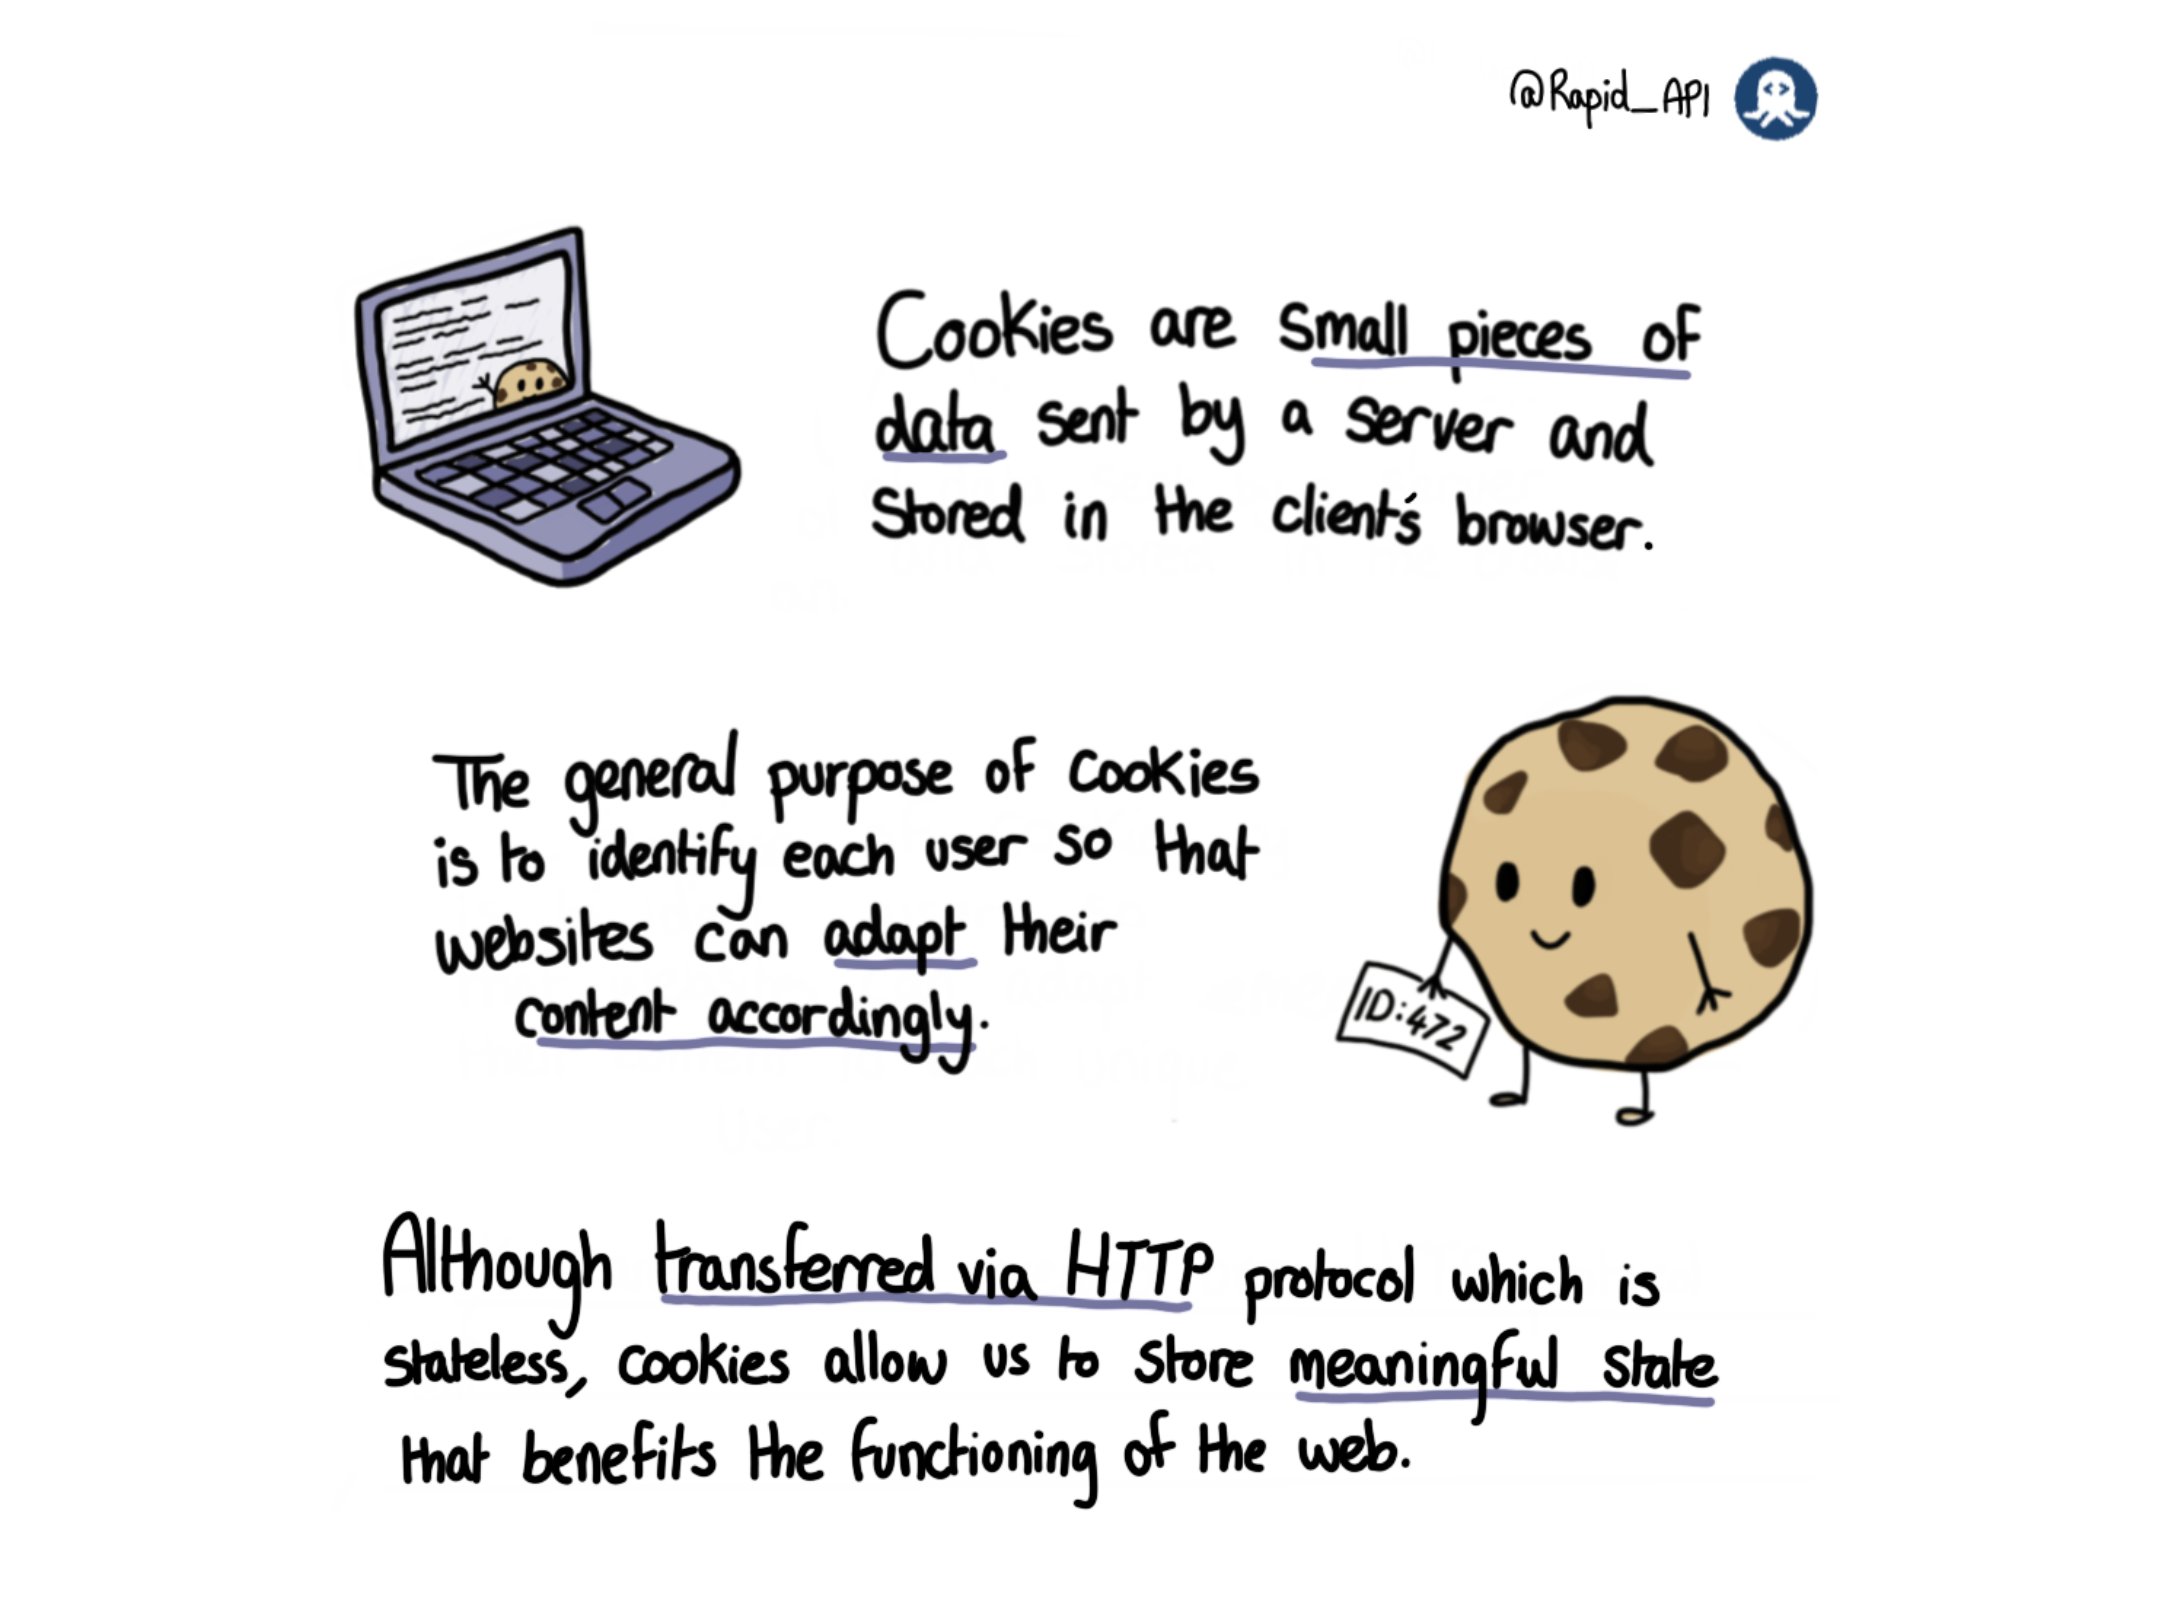 @Rapid_API
Cookies are small pieces of
data sent by a server and
stored in the client's browser.
The general purpose of cookies
is to identify each user so that
websites can adapt their
content accordingly.
ID:472
Although transferred via HTTP protocol which is
stateless, cookies allow us to store meaningful state
that benefits the functioning of the web.